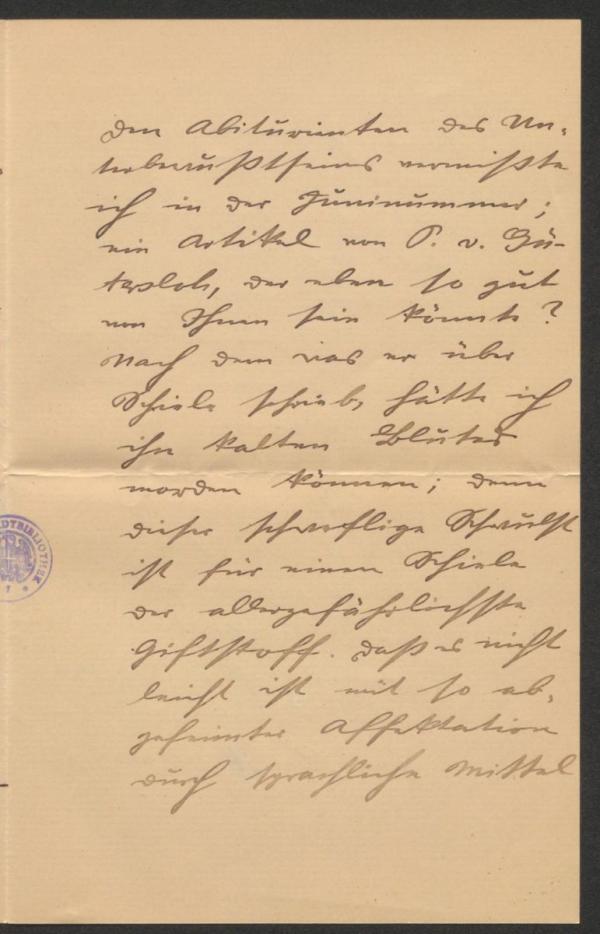 Den Abiturienten des Un-
terbewußtseins vermißte
ich in der Juninummer;
ein Artikel von P. v. Gü-
tersloh, der eben so gut
von Ihnen sein könnte?
Nach dem was er über
Schiele schrieb, hätte ich
ihn kalten Blutes
morden können; denn
dieser schweflige Schwulst
ist für einen Schiele
der allergefährlichste
Giftstoff. Daß es nicht
leicht ist mit so ab-
gefeimter Affektation
durch sprachliche Mittel
DTBIBLIOTHEK